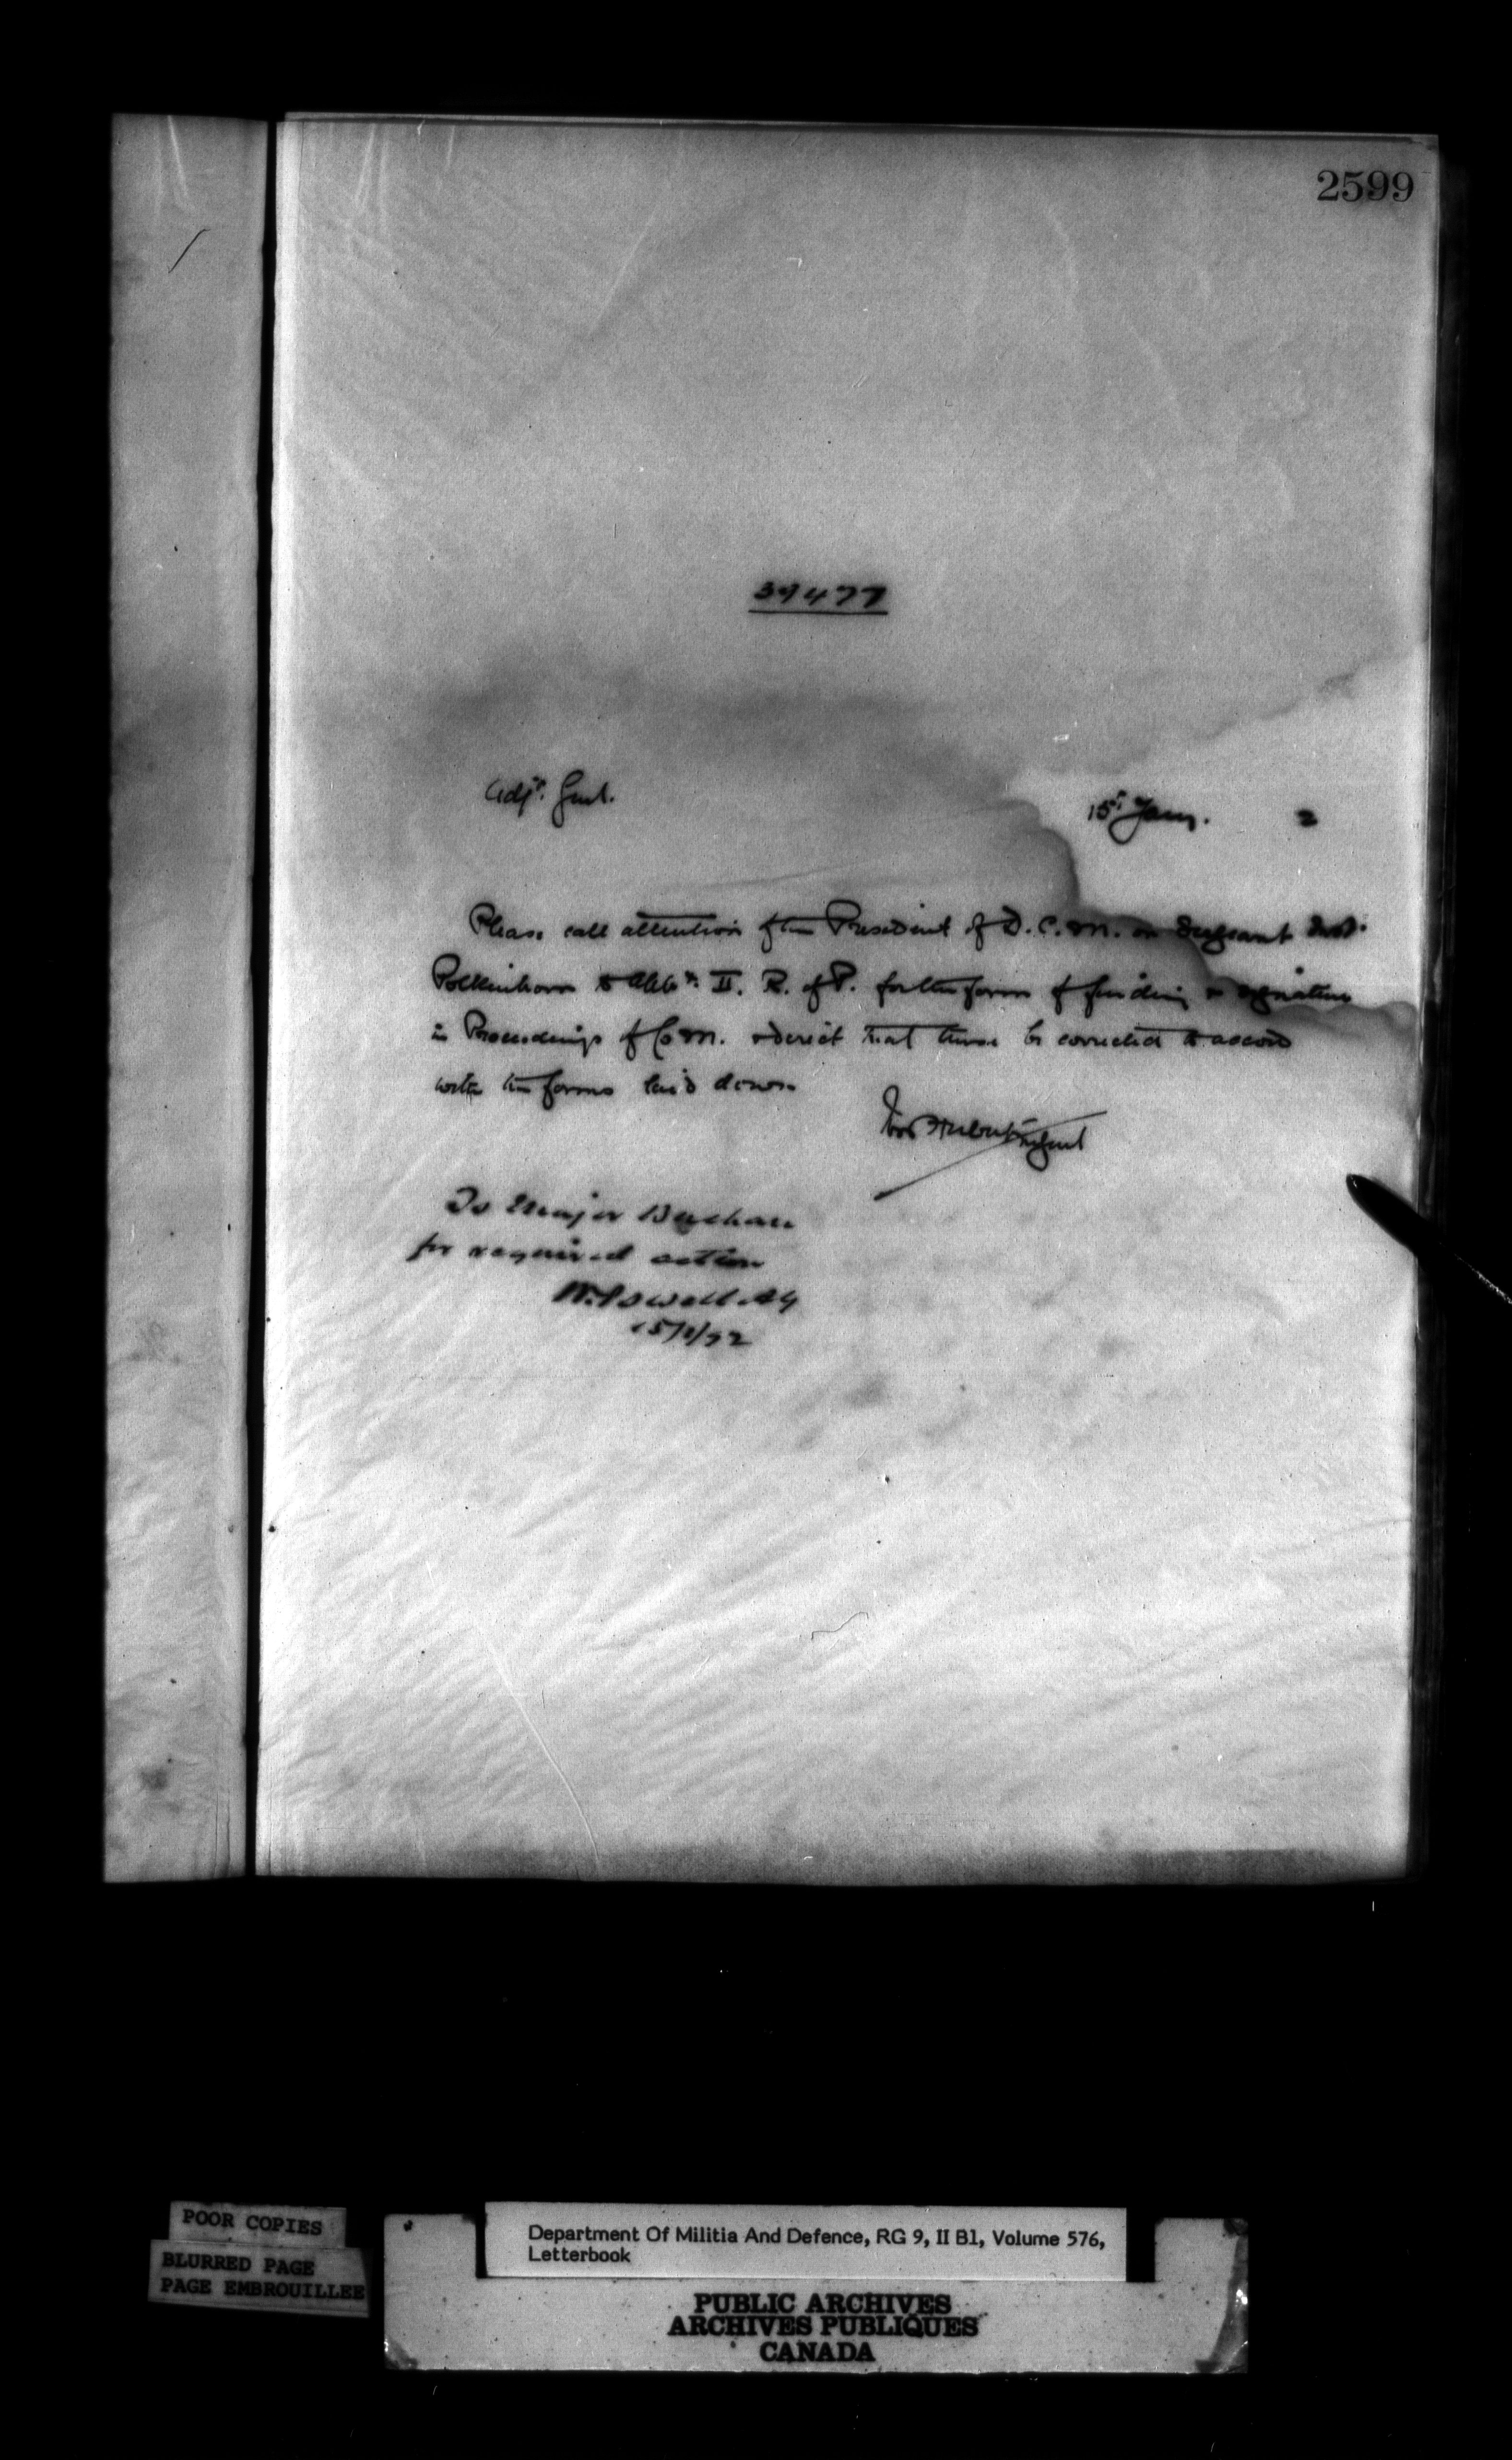 2599
39477
Adjt. Genl.
15th Jany. 2
Please call attention of the President of D.C.M. on Sergeant Inst.
Polkinhorn to App. II. R. of P. for the form of finding & signature
in Proceedings of C.M. & direct that these be corrected to accord
with the forms laid down
Ivor Herbert M Genl
To Major Buchan
for required action
W. Powell AG
15/1/92
POOR COPIES
BLURRED PAGE
PAGE EMBROUILLEE
Department Of Militia And Defence, RG 9, II B1, Volume 576,
Letterbook
PUBLIC ARCHIVES
ARCHIVES PUBLIQUES
CANADA